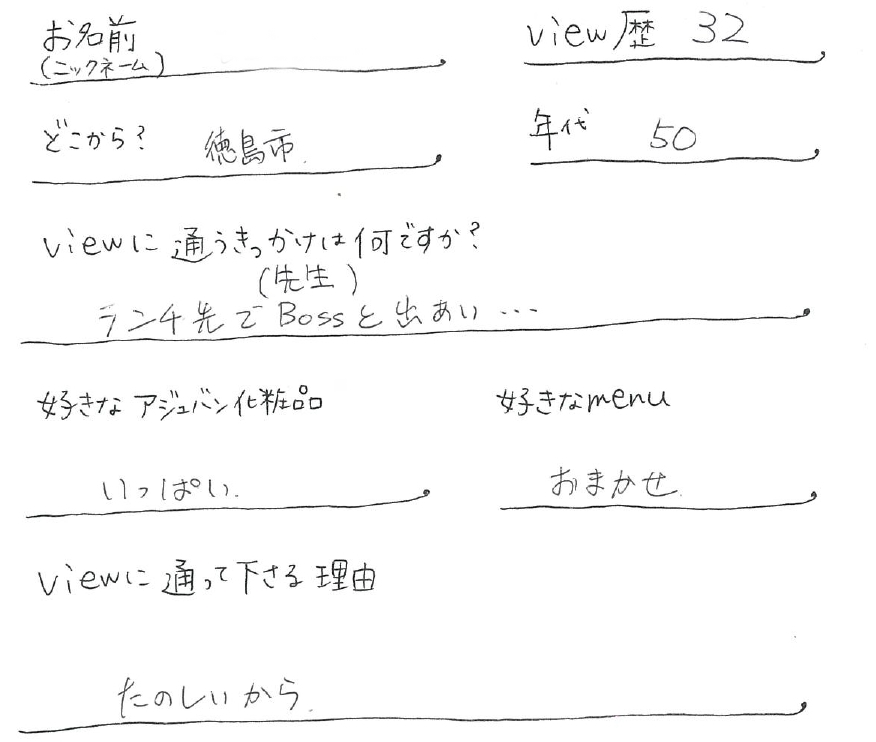 お名前 view歴 32
(ニックネーム)
どこから? 徳島市. 年代 50
viewに通うきっかけは何ですか?
(先生)
ランチ先でBossと出あい…
好きなアジュバン化粧品 好きなmenu
いっぱい. おまかせ.
viewに通って下さる理由
たのしいから.